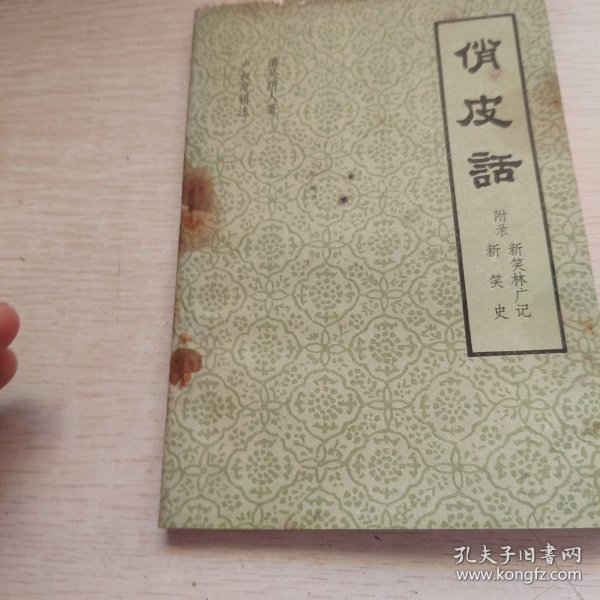 俏皮話
附录
新笑林广记
新笑史
卢叔度辑注
孔夫子旧书网
www.kongfz.com